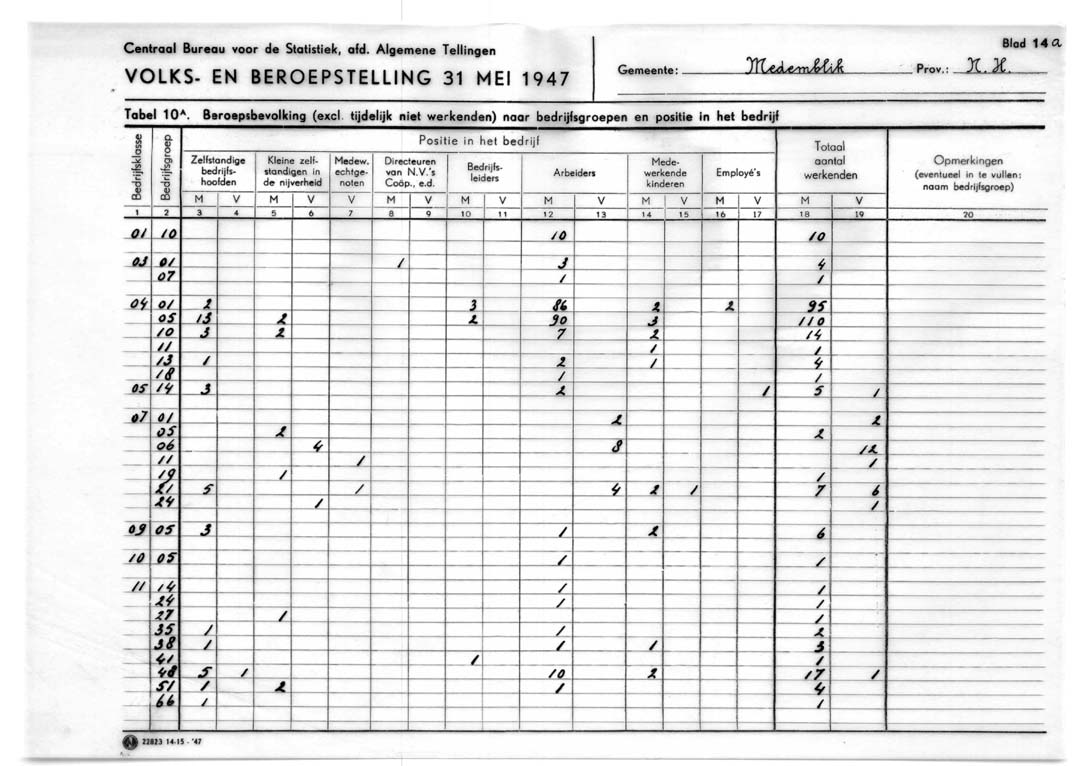 Centraal Bureau voor de Statistiek, afd. Algemene Tellingen
Blad 14a
VOLKS- EN BEROEPSTELLING 31 MEI 1947
Gemeente: Medemblik Prov.: N. H.
Tabel 10A. Beroepsbevolking (excl. tijdelijk niet werkenden) naar bedrijfsgroepen en positie in het bedrijf
Bedrijfsklasse
Bedrijfsgroep
Positie in het bedrijf
Zelfstandige
bedrijfs-
hoofden
Kleine zelf-
standigen in
de nijverheid
Medew.
echtge-
noten
Directeuren
van N.V.'s
Coöp., e.d.
Bedrijfs-
leiders
Arbeiders
Mede-
werkende
kinderen
Employé's
Totaal
aantal
werkenden
Opmerkingen
(eventueel in te vullen:
naam bedrijfsgroep)
M V M V V M V M V M V M V M V M V
1 2 3 4 5 6 7 8 9 10 11 12 13 14 15 16 17 18 19 20
01 10 10 10
03 01 1 3 4
07 1 1
04 01 2 3 86 2 2 95
05 13 2 2 90 3 110
10 3 2 7 2 14
11 1 1
13 1 2 1 4
18 1 1
05 14 3 2 1 5 1
07 01 2 2
05 2 2
06 4 8 12
11 1 1
19 1 1
21 5 1 4 2 1 7 6
24 1 1
09 05 3 1 2 6
10 05 1 1
11 14 1 1
24 1 1
27 1 1
35 1 1 2
38 1 1 1 3
41 1 1
48 5 1 10 2 17 1
51 1 2 1 4
66 1 1
22823 14-15 - '47